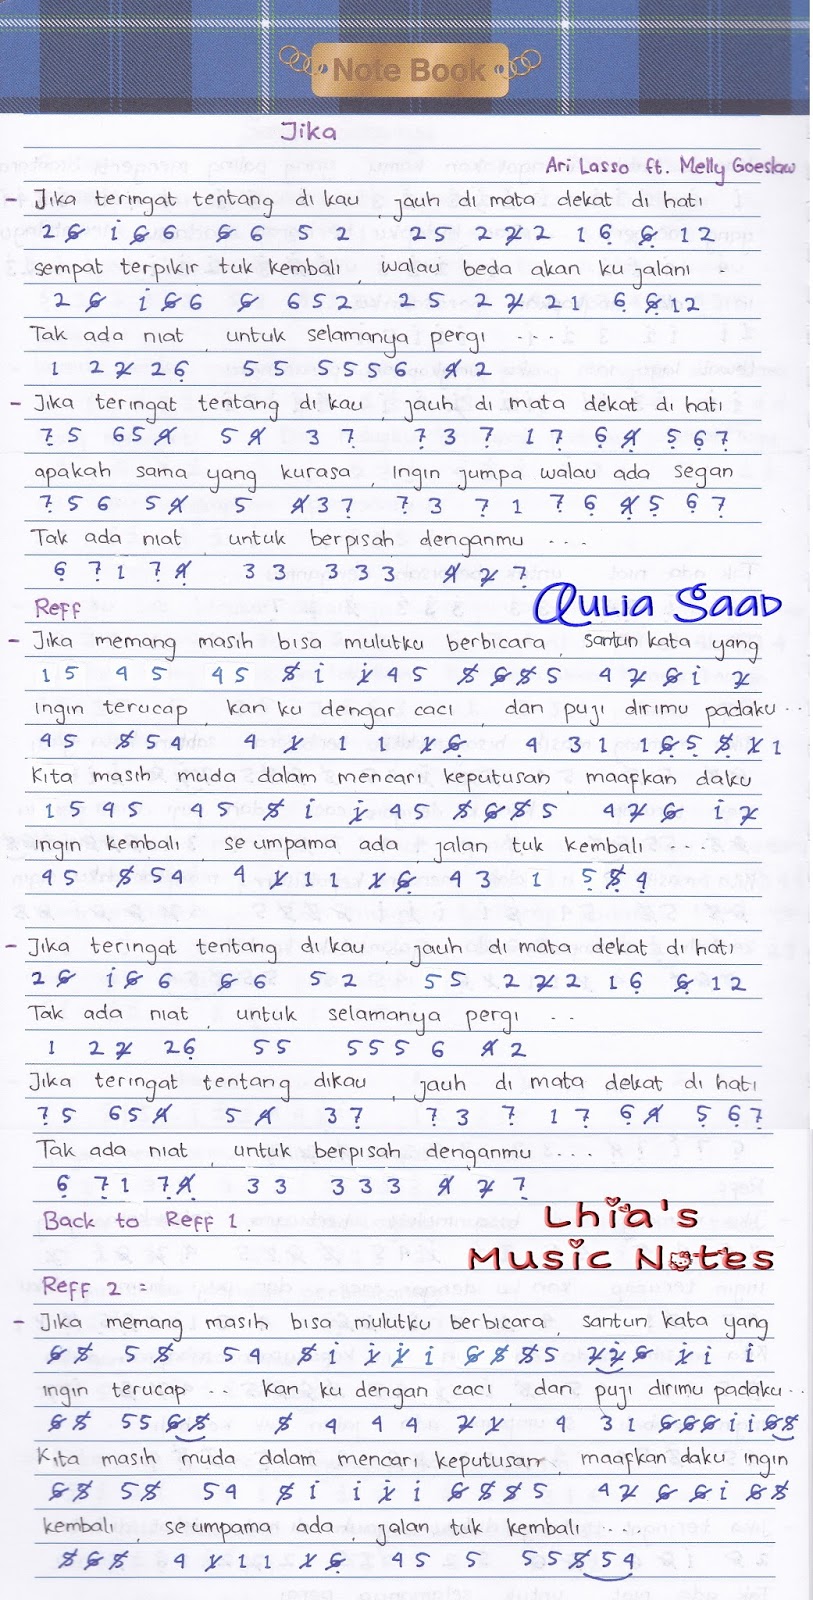 Note Book
Jika
Ari Lasso ft. Melly Goeslaw
- Jika teringat tentang di kau, jauh di mata dekat di hati
2 6 i 6 6 6 6 5 2 2 5 2 2 2 1 6 6 1 2
sempat terpikir tuk kembali, walau beda akan ku jalani -
2 6 i 6 6 6 6 5 2 2 5 2 2 2 1 6 6 1 2
Tak ada niat, untuk selamanya pergi ...
1 2 2 2 6 5 5 5 5 5 6 4 2
- Jika teringat tentang di kau, jauh di mata dekat di hati
7 5 6 5 4 5 4 3 7 7 3 7 1 7 6 4 5 6 7
apakah sama yang kurasa, Ingin jumpa walau ada segan
7 5 6 5 4 5 4 3 7 7 3 7 1 7 6 4 5 6 7
Tak ada niat, untuk berpisah denganmu ...
6 7 1 7 4 3 3 3 3 3 4 2 7
Reff
Aulia Saad
- Jika memang masih bisa mulutku berbicara santun kata yang
1 5 4 5 4 5 5 i i 4 5 5 6 5 5 4 2 6 i 2
ingin terucap, kan ku dengar caci, dan puji dirimu padaku ..
4 5 5 5 4 4 1 1 1 1 6 4 3 1 1 6 5 5 1 1
Kita masih muda dalam mencari keputusan, maafkan daku
1 5 4 5 4 5 5 i i 4 5 5 6 5 5 4 2 6 i 2
ingin kembali, seumpama ada, jalan tuk kembali ...
4 5 5 5 4 4 1 1 1 1 6 4 3 1 5 5 4
- Jika teringat tentang di kau, jauh di mata dekat di hati
2 6 i 6 6 6 6 5 2 5 5 2 2 2 1 6 6 1 2
Tak ada niat, untuk selamanya pergi ..
1 2 2 2 6 5 5 5 5 5 6 4 2
Jika teringat tentang dikau, jauh di mata dekat di hati
7 5 6 5 4 5 4 3 7 7 3 7 1 7 6 4 5 6 7
Tak ada niat, untuk berpisah denganmu ...
6 7 1 7 4 3 3 3 3 3 4 2 7
Back to Reff 1.
Lhia's
Music Notes
Reff 2 =
- Jika memang masih bisa mulutku berbicara, santun kata yang
6 5 5 5 5 4 5 i i i i 6 5 5 5 2 2 6 i i i
ingin terucap .. kan ku dengan caci, dan puji dirimu padaku ..
6 5 5 5 6 5 5 4 4 4 2 1 4 3 1 6 6 6 i i 6 5
Kita masih muda dalam mencari keputusan, maafkan daku ingin
6 5 5 5 5 4 5 i i i i 6 5 5 5 4 2 6 6 i 6 5
kembali, seumpama ada, jalan tuk kembali ....
5 6 5 4 1 1 1 1 6 4 5 5 5 5 5 5 4